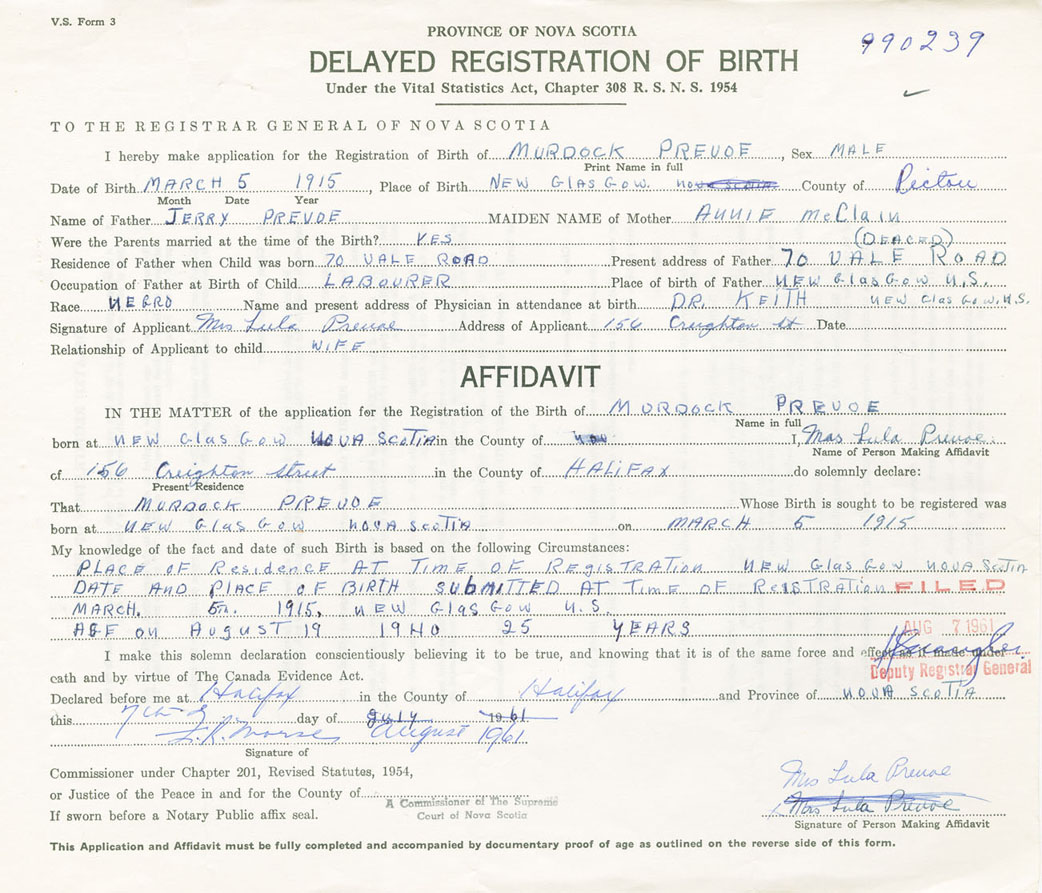 V.S. Form 3
PROVINCE OF NOVA SCOTIA
990239
DELAYED REGISTRATION OF BIRTH
Under the Vital Statistics Act, Chapter 308 R. S. N. S. 1954
TO THE REGISTRAR GENERAL OF NOVA SCOTIA
I hereby make application for the Registration of Birth of MURDOCK PREVOE, Sex MALE
Print Name in full
Date of Birth MARCH 5 1915, Place of Birth NEW GlasGow. NOVA SCOTIA County of Pictou
Month Date Year
Name of Father JERRY PREVOE MAIDEN NAME of Mother ANNIE McClain
Were the Parents married at the time of the Birth? YES (DEACED)
Residence of Father when Child was born 70 VALE ROAD Present address of Father 70 VALE ROAD
Occupation of Father at Birth of Child LABOURER Place of birth of Father NEW GlasGow N.S.
Race NEGRO Name and present address of Physician in attendance at birth DR. KEITH NEW GlasGow, N.S.
Signature of Applicant Mrs Lula Prevoe Address of Applicant 156 Creighton St Date
Relationship of Applicant to child WIFE
AFFIDAVIT
IN THE MATTER of the application for the Registration of the Birth of MURDOCK PREVOE
Name in full
born at NEW GlasGow NOVA SCOTIA in the County of I, Mrs Lula Prevoe
Name of Person Making Affidavit
of 156 Creighton Street in the County of HALIFAX do solemnly declare:
Present Residence
That MURDOCK PREVOE Whose Birth is sought to be registered was
born at NEW GlasGow NOVA SCOTIA on MARCH 5 1915
My knowledge of the fact and date of such Birth is based on the following Circumstances:
PLACE OF Residence AT TIME OF REGISTRATION NEW GlasGow NOVA SCOTIA
DATE AND PLACE OF BIRTH SUBMITTED AT TIME OF REISTRATION FILED
MARCH. 5TH. 1915, NEW GlasGow N.S.
AGE ON AUGUST 19 1940 25 YEARS
AUG 7 1961
I make this solemn declaration conscientiously believing it to be true, and knowing that it is of the same force and effect as if made under
Deputy Registrar General
oath and by virtue of The Canada Evidence Act.
Declared before me at Halifax in the County of Halifax and Province of NOVA SCOTIA
this 7th day of July 1961
August 1961
Signature of
Commissioner under Chapter 201, Revised Statutes, 1954,
Mrs Lula Prevoe
or Justice of the Peace in and for the County of
A Commissioner of The Supreme
Mrs Lula Prevoe
If sworn before a Notary Public affix seal.
Court of Nova Scotia
Signature of Person Making Affidavit
This Application and Affidavit must be fully completed and accompanied by documentary proof of age as outlined on the reverse side of this form.